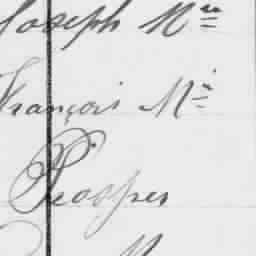 Joseph Mie
François Mi
Prosper